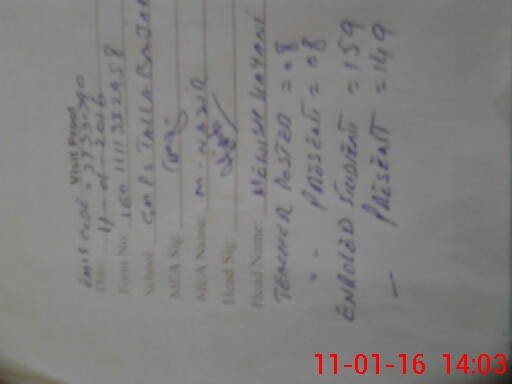 Visit Proof
EMIS CODE =
Date: 11-01-2016
Form No: 1601111332958
School GMPS TALLA BAJAR
MEA Sig:
MEA Name: M. NASIR
Head Sig:
Head Name: MEHWISH KAYANI
TEACHER POSTED = 08
" - PRESENT = 08
ENROLED STUDENT = 159
— PRESENT = 149
11-01-16 14:03